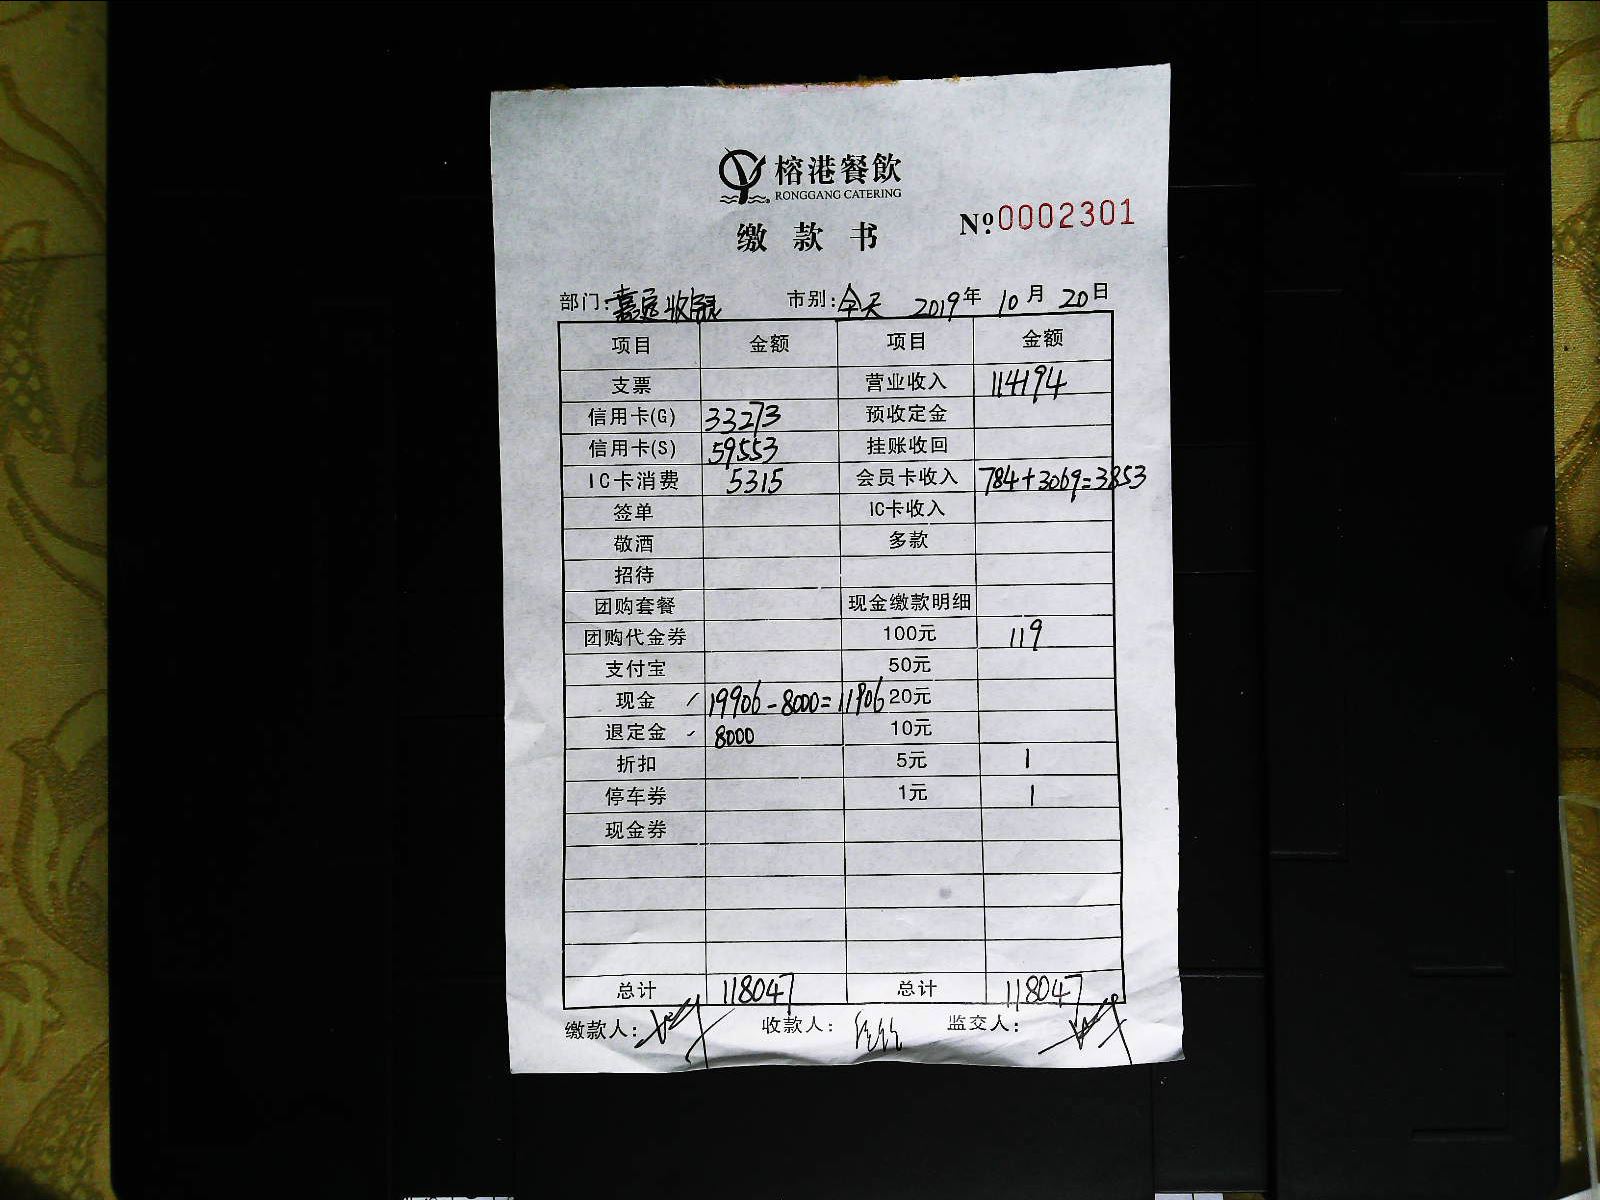 榕港餐飲
RONGGANG CATERING
缴款书 Nº 0002301
部门: 嘉定收银 市别: 今天 2019年 10月 20日
项目 金额 项目 金额
支票 营业收入 114194
信用卡(G) 33273 预收定金
信用卡(S) 59553 挂账收回
IC卡消费 5315 会员卡收入 784+3069=3853
签单 IC卡收入
敬酒 多款
招待
团购套餐 现金缴款明细
团购代金券 100元 119
支付宝 50元
现金 19906-8000=11906 20元
退定金 8000 10元
折扣 5元 1
停车券 1元 1
现金券
总计 118047 总计 118047
缴款人: 收款人: 监交人: